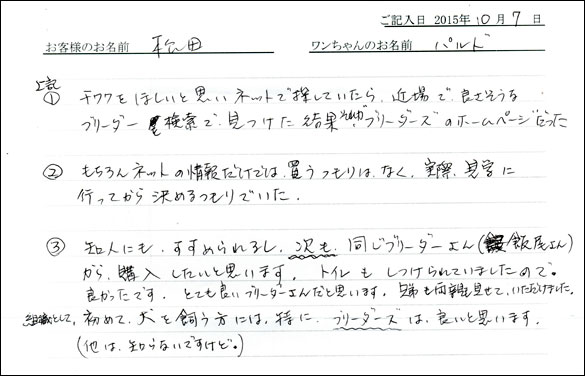 ご記入日 2015年 10月 7日
お客様のお名前 松田 ワンちゃんのお名前 パルド
上記
① チワワを ほしいと思い ネットで探していたら、近場で 良さそうな
ブリーダー 検索で 見つけた 結果 それが "ブリーダーズ"のホームページだった
② もちろんネットの情報だけでは 買うつもりは なく、実際 見学に
行ってから 決めるつもりでいた。
③ 知人にも すすめられるし、次も 同じブリーダーさん(飯尾さん)
から 購入 したいと思います。 トイレも しつけられていましたので。
良かったです。 とても良いブリーダーさんだと思います。 兄弟も両親も見せて、いただけました。
組織として、初めて、犬を飼う方には、特に、ブリーダーズは、良いと思います。
(他は、知らないですけど。)